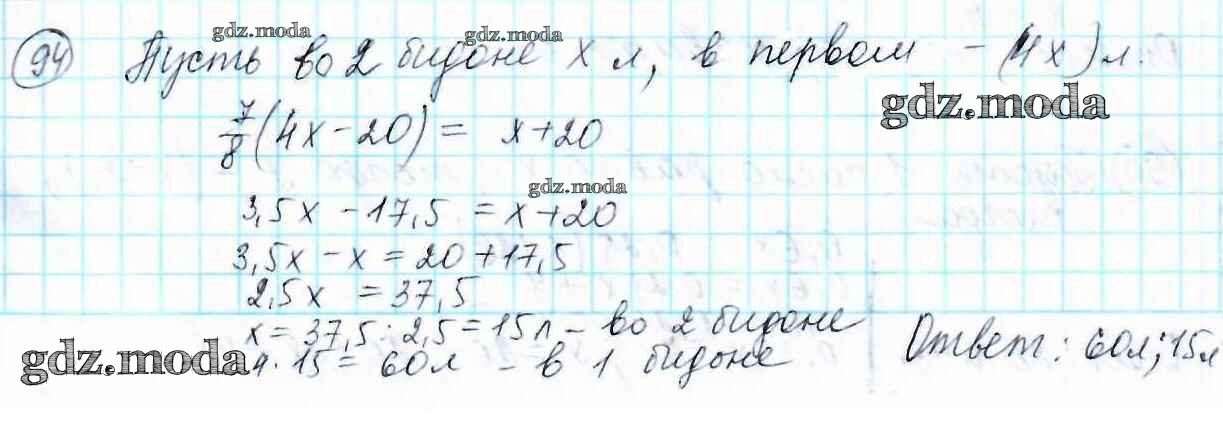 94 Пусть во 2 бидоне x л, в первом – (4x) л.
7/8 (4x – 20) = x + 20
3,5x – 17,5 = x + 20
3,5x – x = 20 + 17,5
2,5x = 37,5
x = 37,5 : 2,5 = 15 л – во 2 бидоне
4 · 15 = 60 л – в 1 бидоне
Ответ: 60л; 15л
gdz.moda
gdz.moda
gdz.moda
gdz.moda
gdz.moda